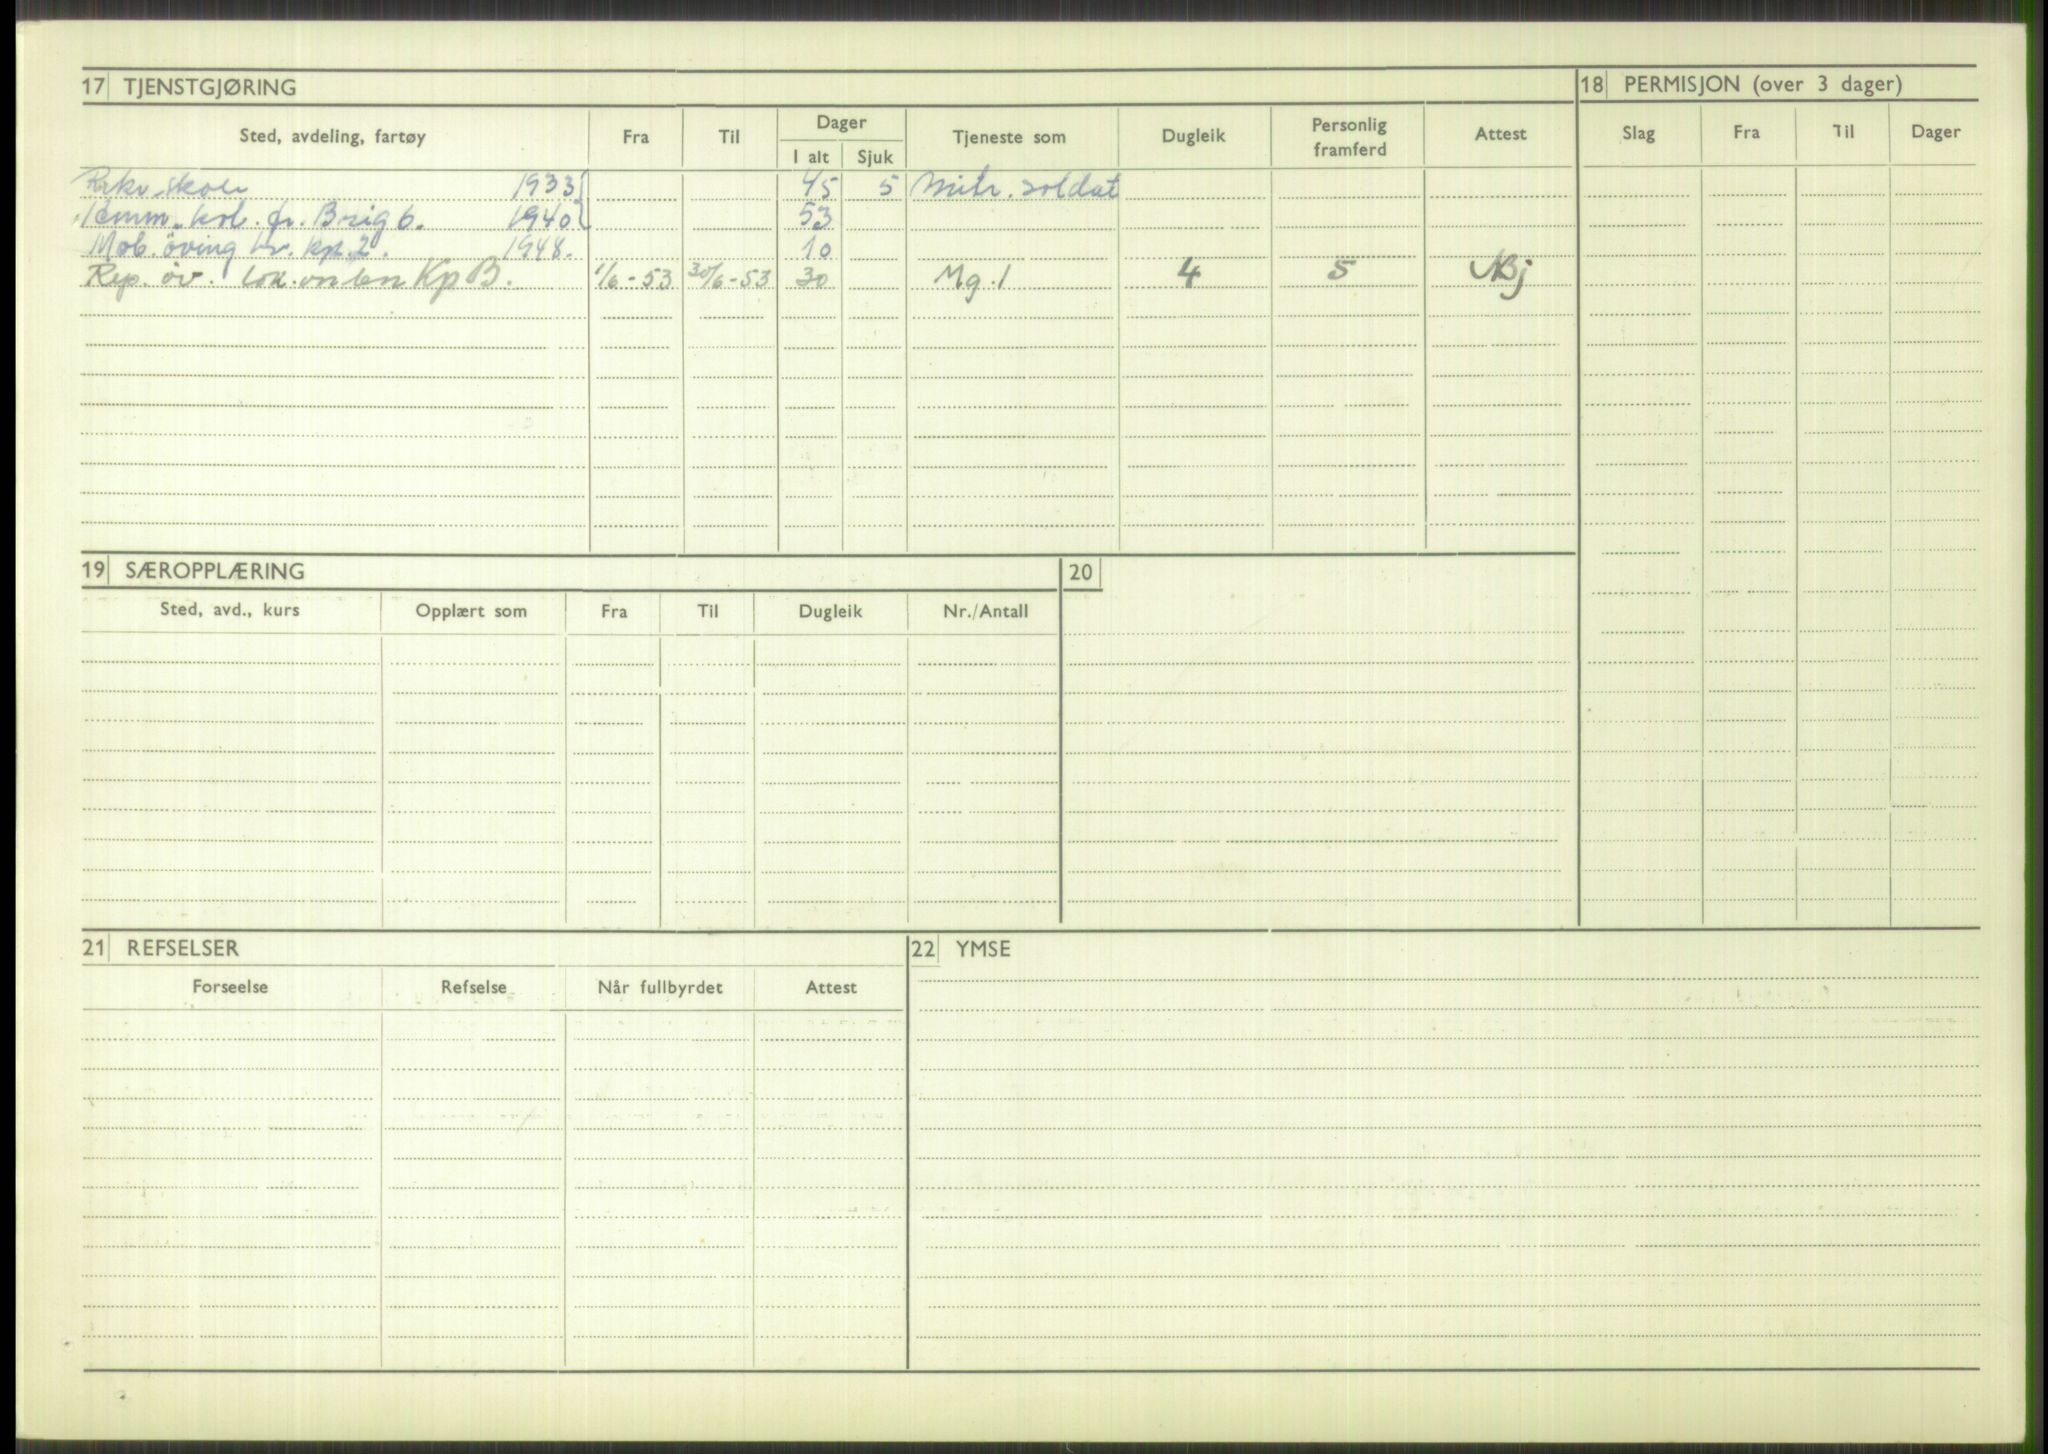 17 TJENSTGJØRING
18 PERMISJON (over 3 dager)
Sted, avdeling, fartøy Fra Til Dager Tjeneste som Dugleik Personlig framferd Attest
I alt Sjuk
Slag Fra Til Dager
Rekr. skole 1933 45 5 Mitr. soldat
kol. fr. Brig 6. 1940 53
Mob. öving kp. 2. 1948. 10
Rep. öv. Lok. Kp B. 1/6-53 30/6-53 30 Mg. 1 4 5 ABj
19 SÆROPPLÆRING
20
Sted, avd., kurs Opplært som Fra Til Dugleik Nr./Antall
21 REFSELSER
22 YMSE
Forseelse Refselse Når fullbyrdet Attest